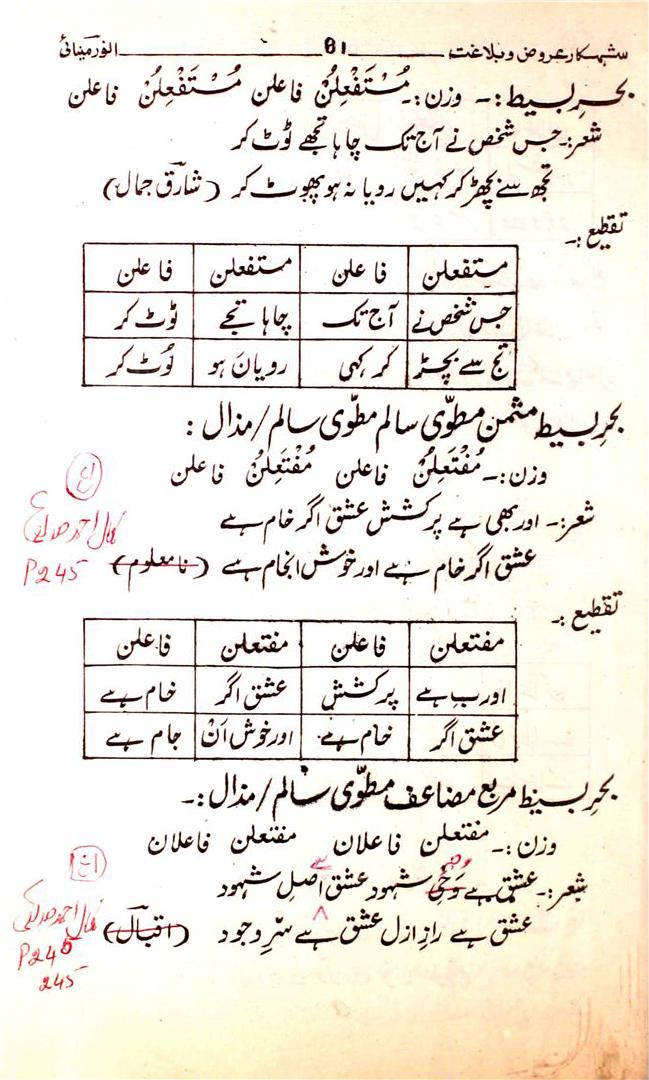 شہکار عروض و بلاغت 61 انور مینائی
بحرِ بسیط:۔ وزن:۔ مُسْتَفْعِلُنْ فاعلن مُسْتَفْعِلُنْ فاعلن
شعر:۔ جس شخص نے آج تک چاہا تجھے ٹوٹ کر
تجھ سے بچھڑ کر کہیں رویا نہ ہو پھوٹ کر (شارق جمال)
تقطیع:۔
مستفعلن فاعلن مستفعلن فاعلن
جس شخص نے آج تک چاہا تجے ٹوٹ کر
تج سے بچڑ کر کہی رویا نہ ہو ٹوٹ کر
بحرِ بسیط مثمن مطوّی سالم مطوّی سالم/مذال:
وزن:۔ مُفْتَعِلُنْ فاعلن مُفْتَعِلُنْ فاعلن
شعر:۔ اور بھی ہے پرکشش عشق اگر خام ہے
عشق اگر خام ہے اور خوش انجام ہے (نامعلوم)
کمال احمد صدیقی
P 245
تقطیع:۔
مفتعلن فاعلن مفتعلن فاعلن
اورب ہے پرکشش عشق اگر خام ہے
عشق اگر خام ہے اورخوش اَنْ جام ہے
بحرِ بسیط مربع مضاعف مطوّی سالم/مذال:۔
وزن:۔ مفتعلن فاعلان مفتعلن فاعلان
شعر:۔ عشق ہے وَحْیِ شہود عشق ہے اصلِ شہود
عشق ہے رازِ ازل عشق ہے سرِّ وجود (اقبال)
کمال احمد صدیقی
P 246
245